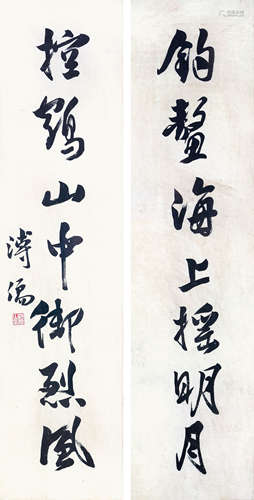 钓鳌海上摇明月
控鹤山中御烈风
溥儒